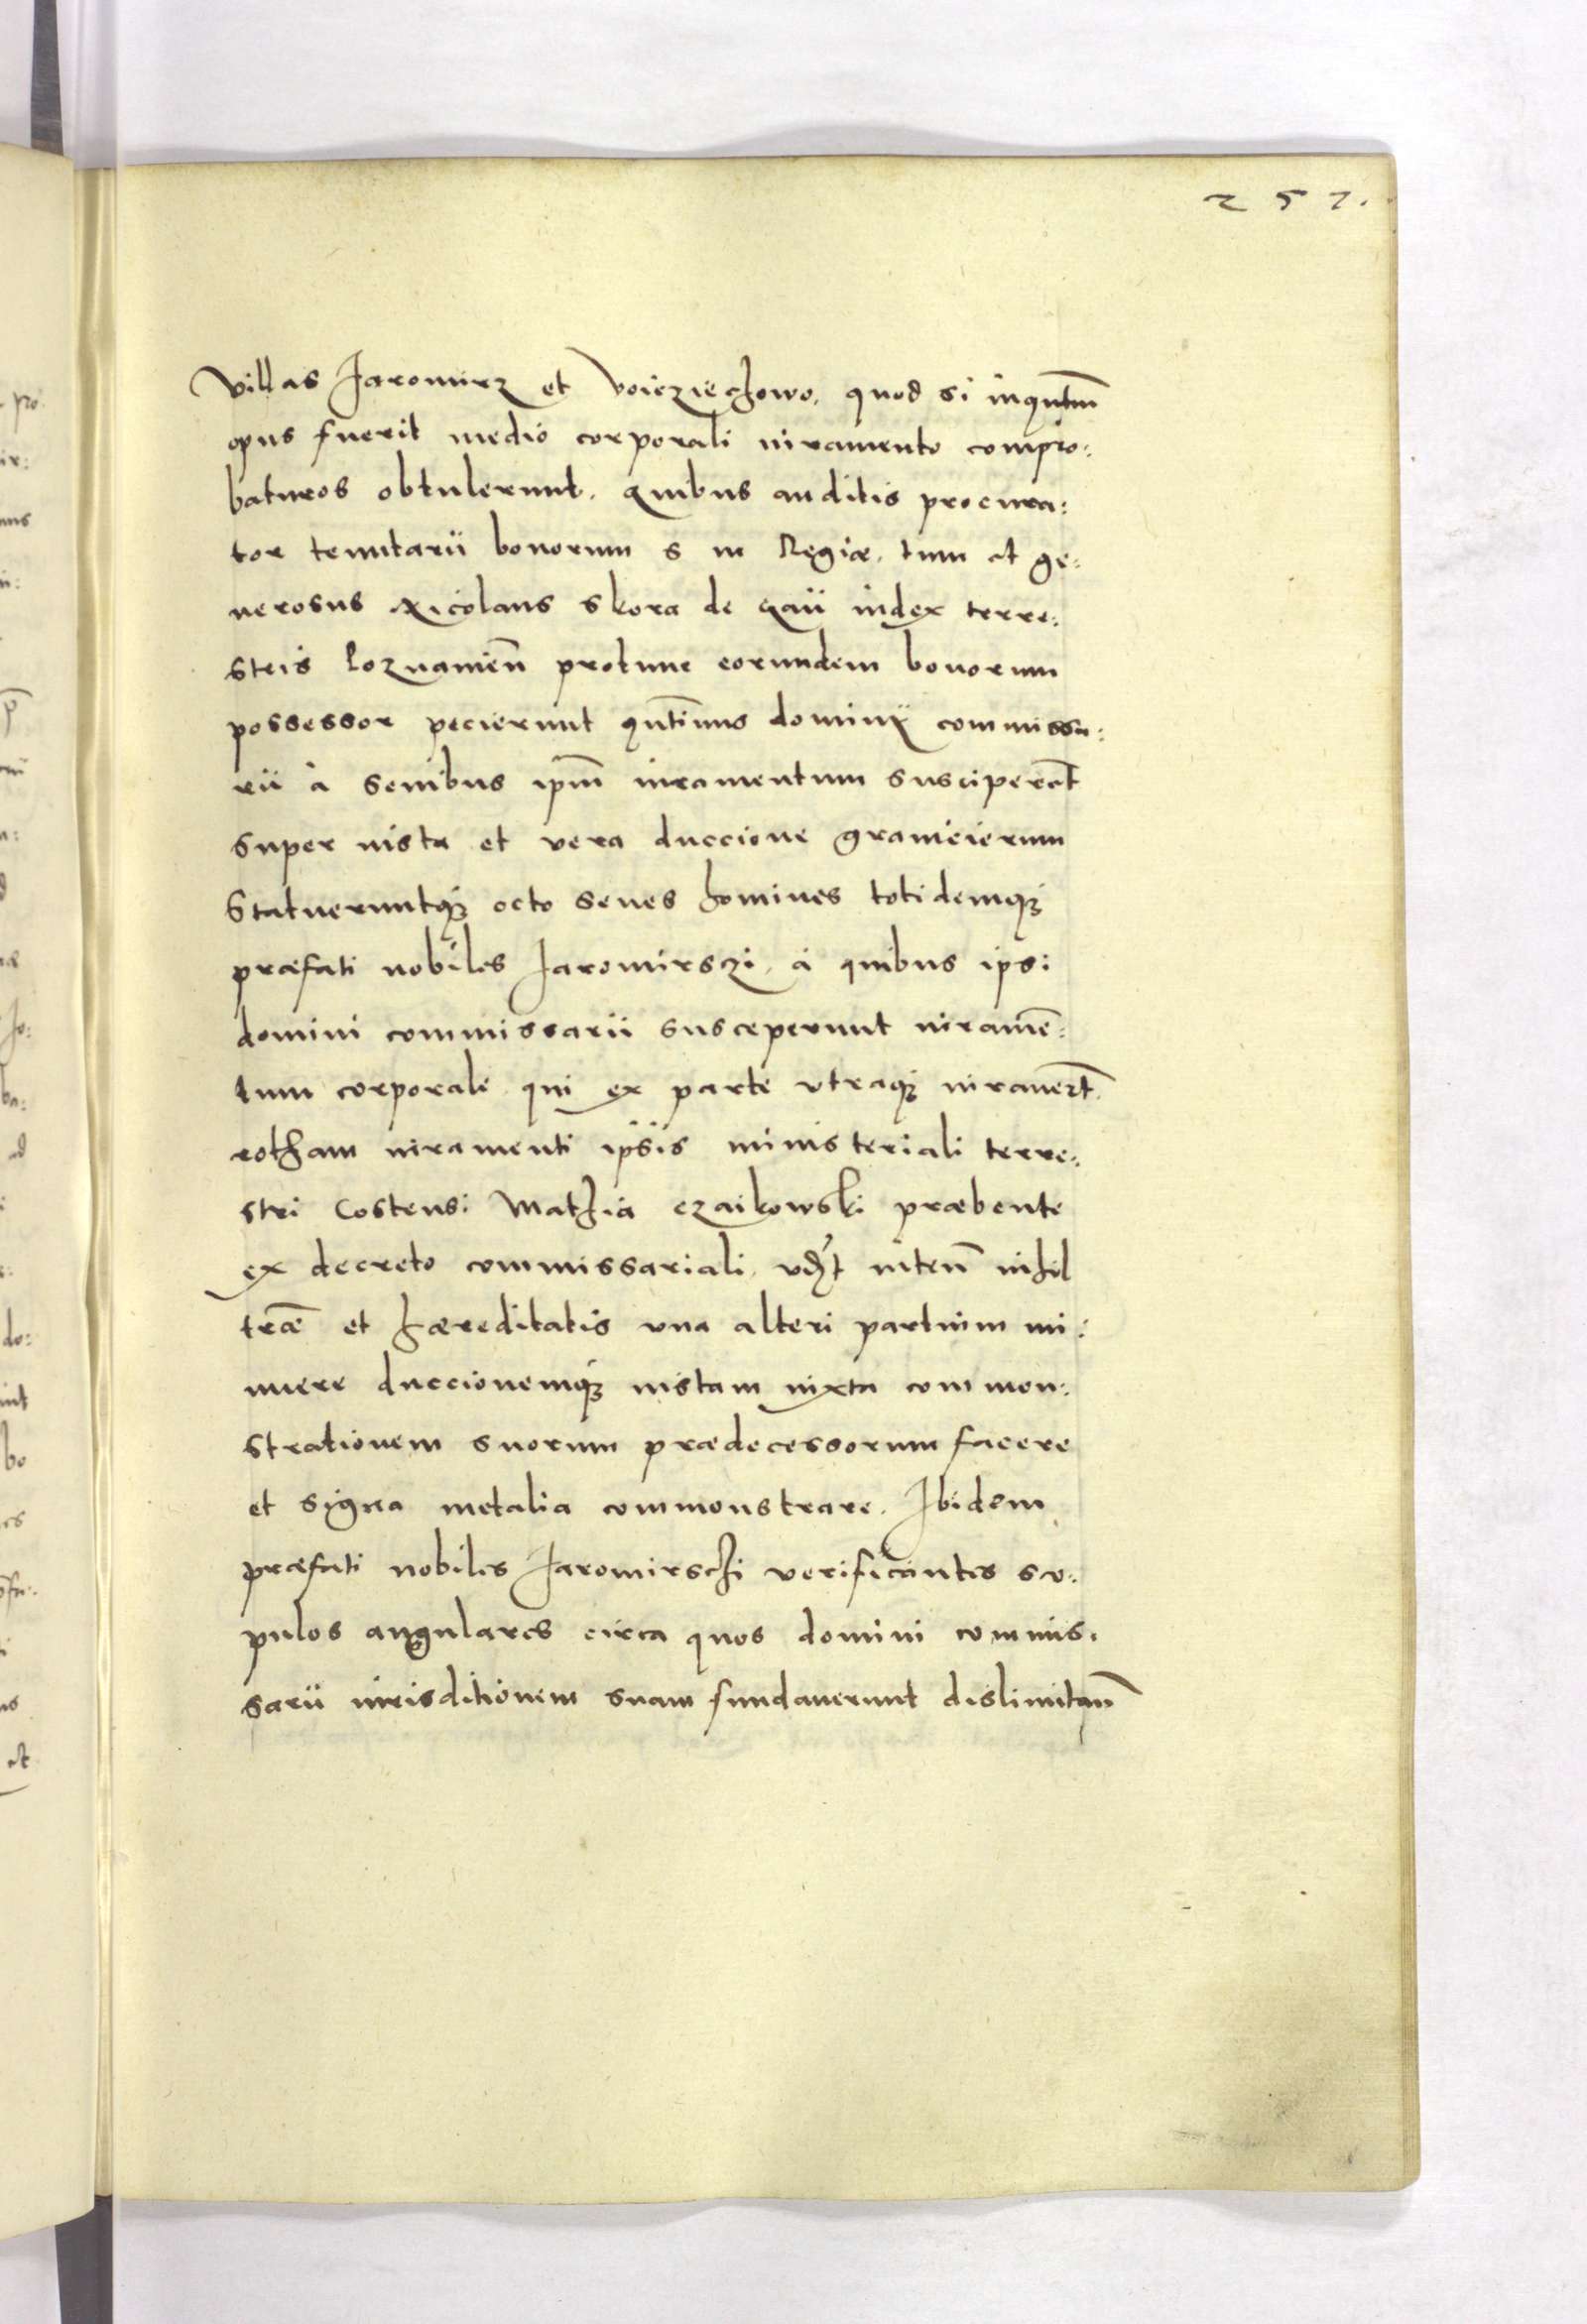 257.
villas Jaromirz et Voicziechowo, quod si inqntum̄
opus fuerit medio corporali iuramento compro:
baturos obtulerunt. Quibus auditis procura:
tor tenutarii bonorum S M Regiæ, tum et ge:
nerosus Nicolaus Skora de Gaii iudex terre:
stris Poznanien̄ protunc eorundem bonorum
possessor pecierunt qntinus domini commissa:
rii à senibus ipm̄ iuramentum susciperēt
super iusta et vera duccione granicierum
Statueruntqȝ octo senes homines totidemqȝ
præfati nobiles Jaromirsczi, à quibus ipsi
domini commissarii susceperunt iuramē:
tum corporale qui ex parte vtraqȝ iurauert̄.
rotham iuramenti ipsis ministeriali terre:
stri Costensi Mathia Czaikowski præbente
ex decreto commissariali, vdȝt inten̄ nihil
trǣ et hæreditatis vna alteri partium mi:
nuere duccionemqȝ iustam iuxta common:
strationem suorum prædecessorum facere
et signa metalia commonstrare. Ibidem
præfati nobiles Jaromirschi verificantes sco:
pulos angulares circa quos domini commis:
sarii iurisditionem suam fundauerunt dislimitan̄